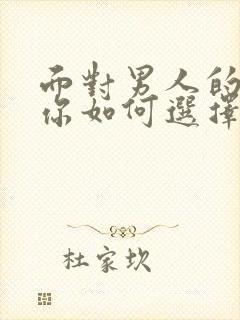 而對男人的
你如何選擇
杜家坎